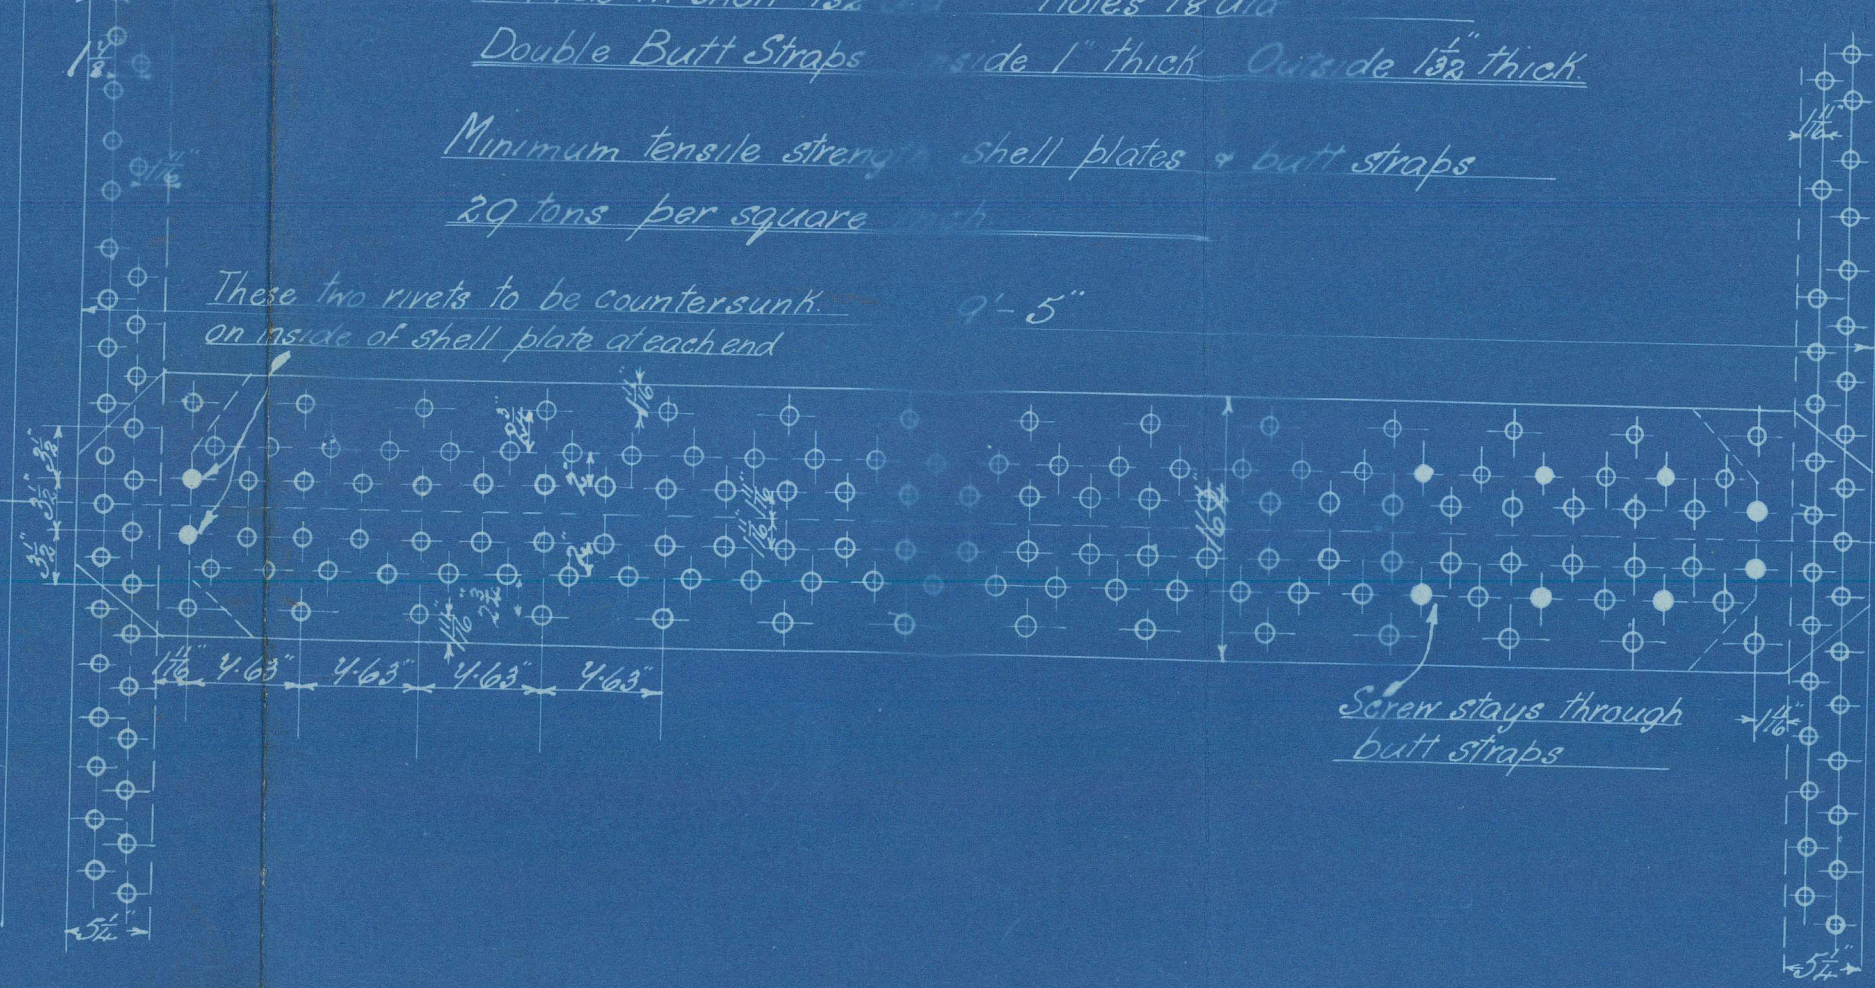 Holes 1⅛ dia
Double Butt Straps   side 1" thick   Outside 1 1/32" thick.
Minimum tensile strength shell plates & butt straps
29 tons per square inch
These two rivets to be countersunk.
on inside of shell plate at each end
9' - 5"
1 11/16"
1 11/16"
1 11/16"
2 3/4"
2"
3 1/2"
3 1/2"
3 1/2"
1 11/16" 1 11/16"
16 3/4"
2"
2 3/4"
1 11/16"
1 11/16" 4·63" 4·63" 4·63" 4·63"
Screw stays through
butt straps
1 11/16"
5 1/4"
5 1/4"